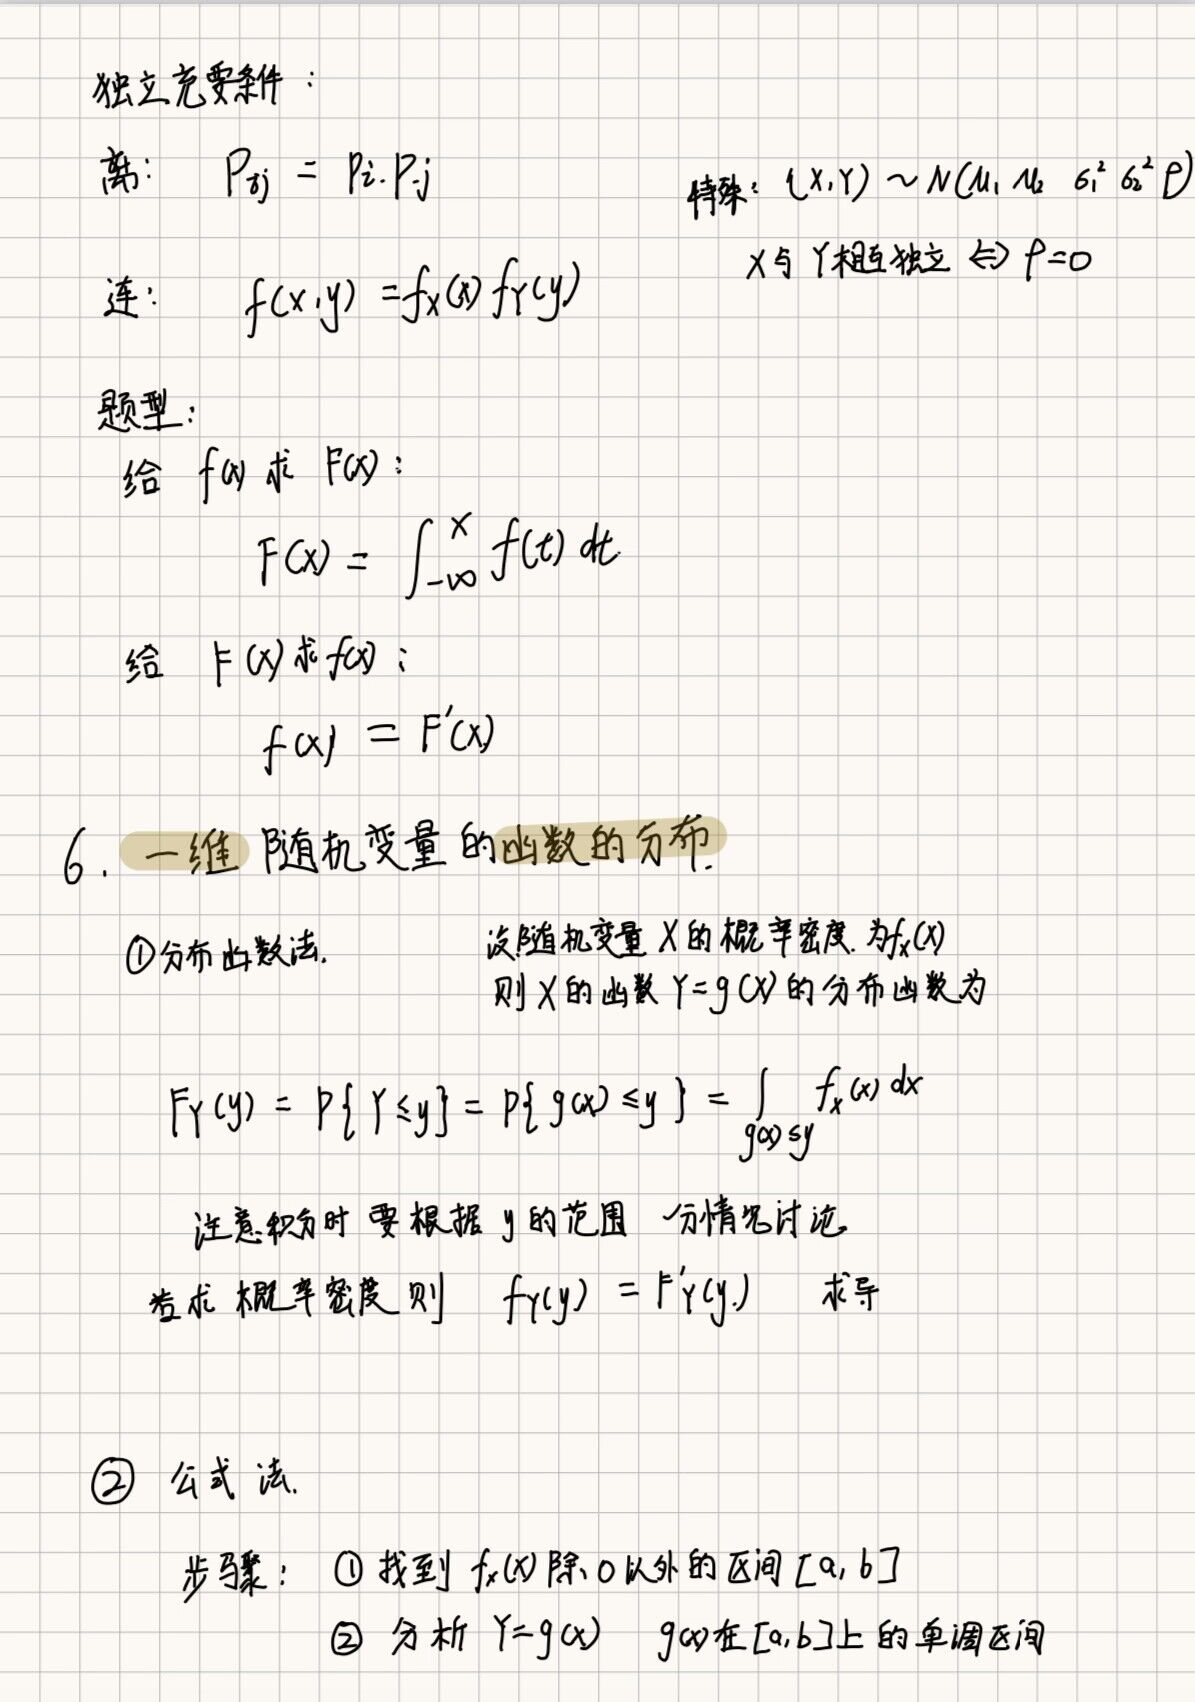 独立充要条件：
离： Pij = Pi·P·j
特殊：(X,Y) ~ N(μ₁ μ₂ σ₁² σ₂² ρ)
X与Y相互独立 ⇔ ρ=0
连： f(x,y) = fX(x) fY(y)
题型：
给 f(x) 求 F(x)：
F(x) = ∫_{-∞}^{x} f(t) dt
给 F(x) 求 f(x)：
f(x) = F'(x)
6. 一维随机变量的函数的分布.
①分布函数法.
设随机变量X的概率密度.为fx(x)
则X的函数Y=g(X)的分布函数为
FY(y) = P{Y≤y} = P{g(x)≤y} = ∫_{g(x)≤y} fx(x) dx
注意积分时要根据y的范围 分情况讨论
若求概率密度则 fY(y) = F'Y(y) 求导
② 公式法.
步骤： ① 找到 fx(x) 除0以外的区间 [a,b]
② 分析 Y=g(x) g(x)在[a,b]上的单调区间